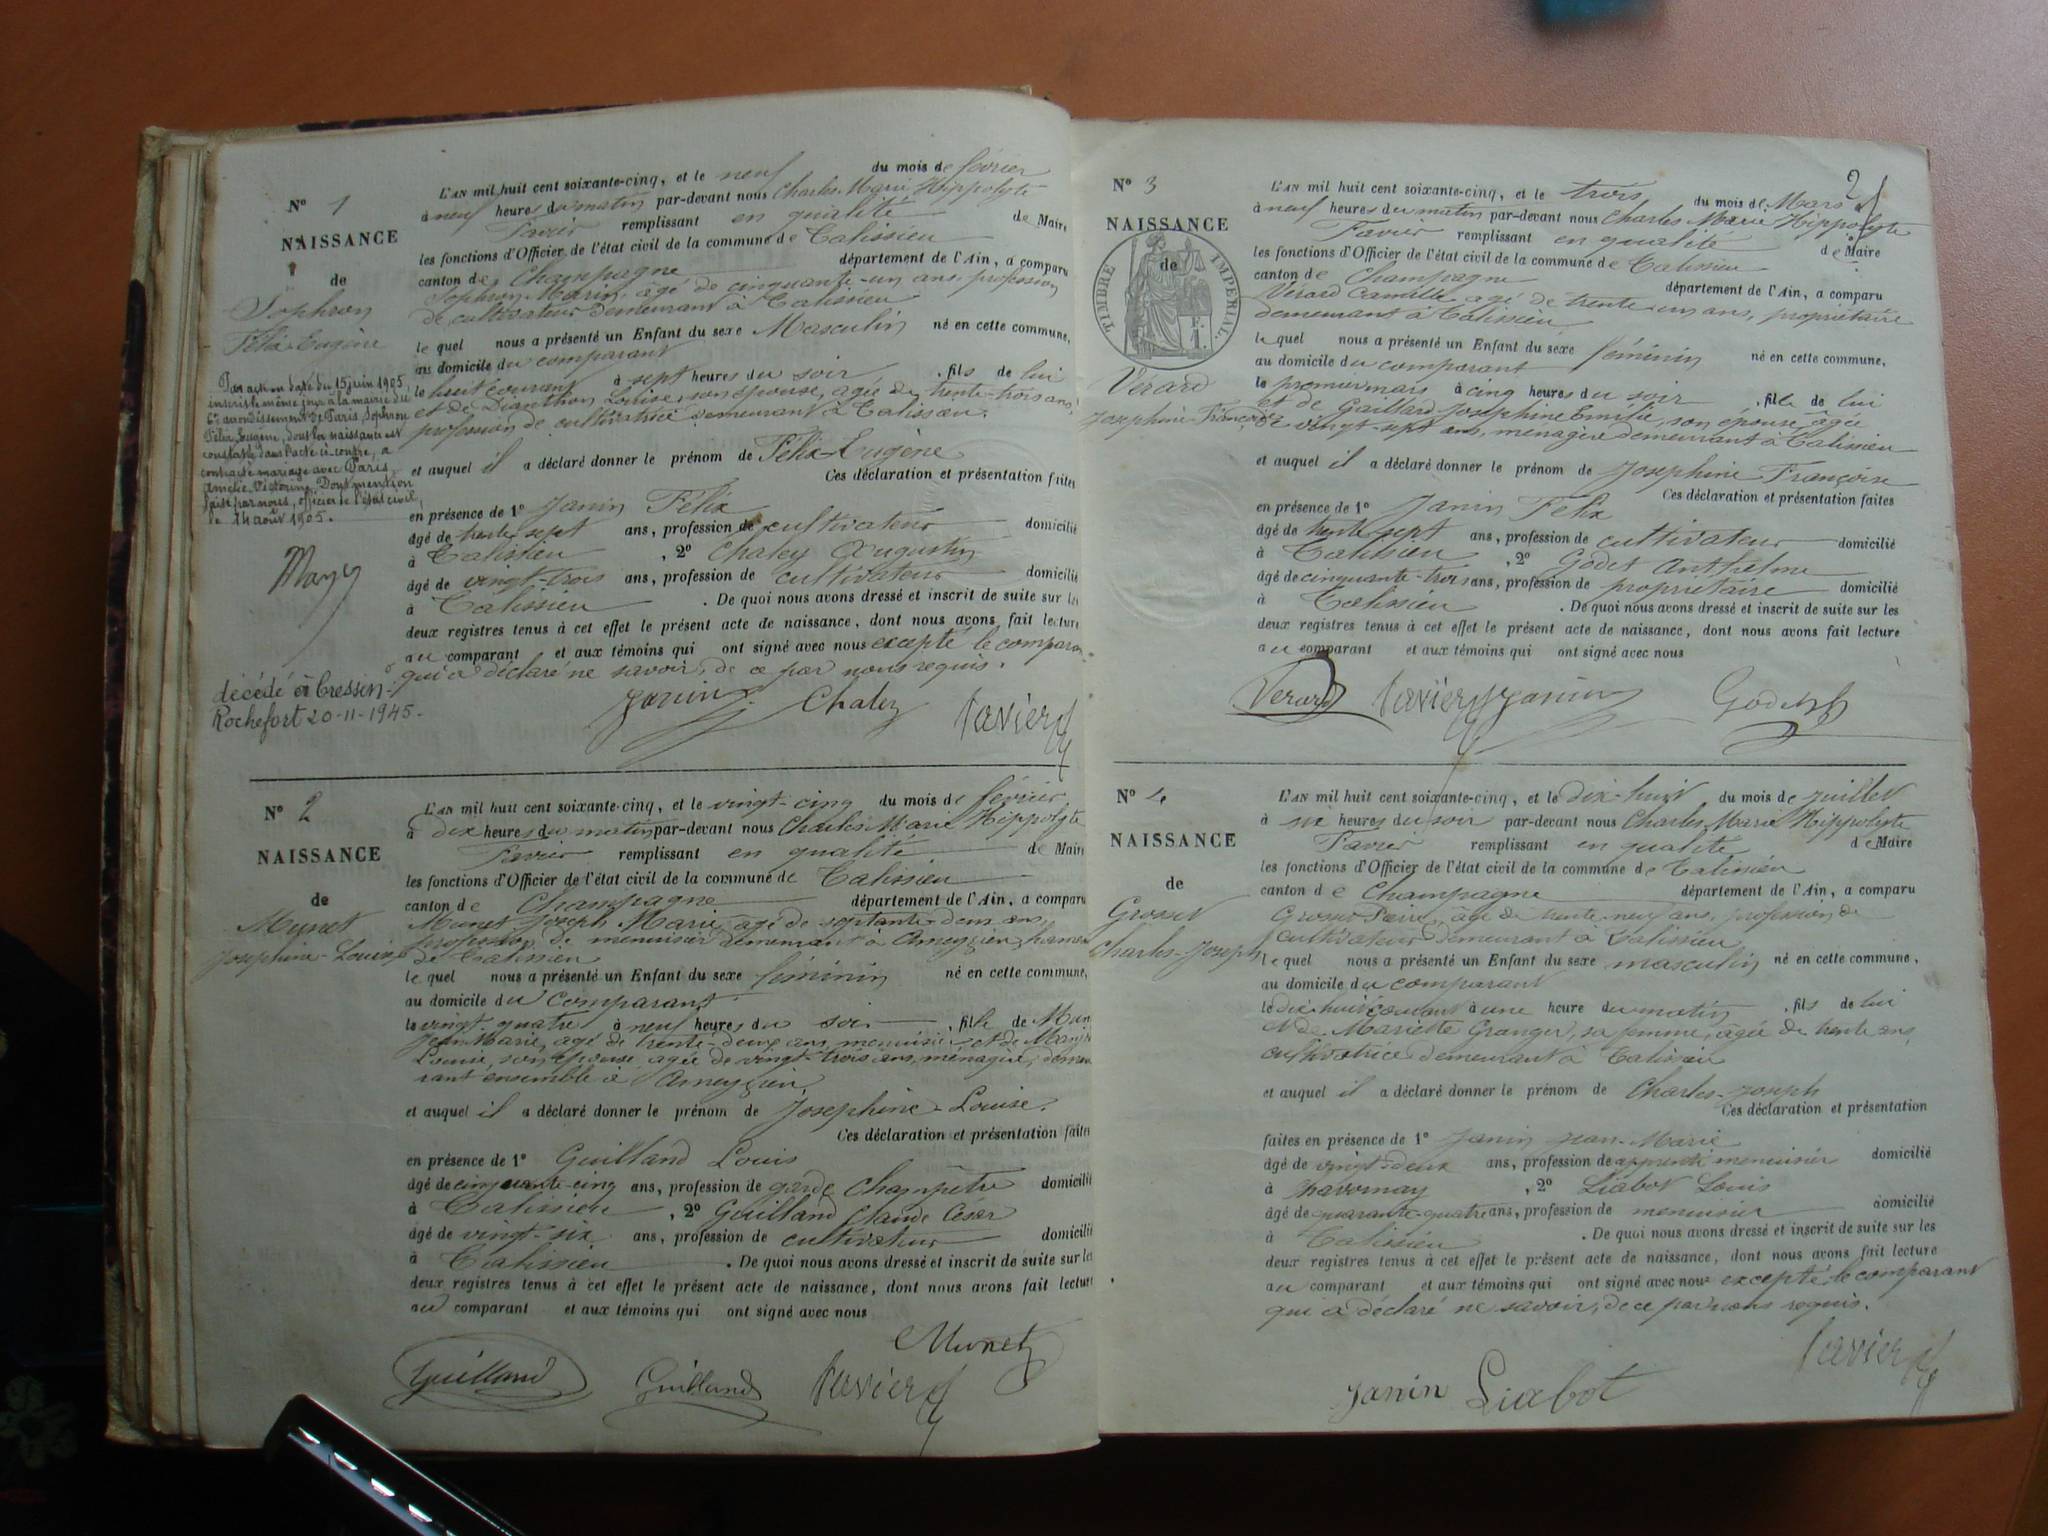 N° 1
NAISSANCE
de
Sophron
Félix-Eugène
Par acte en date du 15 juin 1905
inscrit le même jour à la mairie du
6e arrondissement de Paris, Sophron
Félix Eugène, dont la naissance est
constatée dans l'acte ci-contre, a
contracté mariage avec Paris,
Amélie Victorine. Dont mention
faite par nous, officier de l'état civil,
le 14 août 1905.
décédé à Cressin-
Rochefort 20-11-1945.
L'AN mil huit cent soixante-cinq, et le neuf du mois de février
à neuf heures du matin par-devant nous Charles Marie Hippolyte
Favier remplissant en qualité de Maire
les fonctions d'Officier de l'état civil de la commune de Talissieu
canton de Champagne département de l'Ain, a comparu
Sophron Marin, âgé de cinquante-un ans, profession
de cultivateur demeurant à Talissieu
le quel nous a présenté un Enfant du sexe Masculin né en cette commune,
au domicile du comparant
le huit courant à sept heures du soir, fils de lui
et de Louise, son épouse, âgée de trente-trois ans,
profession de cultivatrice demeurant à Talissieu.
et auquel il a déclaré donner le prénom de Félix-Eugène
Ces déclaration et présentation faites
en présence de 1° Janin Félix
âgé de trente sept ans, profession de cultivateur domicilié
à Talissieu, 2° Chaley Augustin
âgé de vingt-trois ans, profession de cultivateur domicilié
à Talissieu. De quoi nous avons dressé et inscrit de suite sur les
deux registres tenus à cet effet le présent acte de naissance, dont nous avons fait lecture
au comparant et aux témoins qui ont signé avec nous excepté le comparant
qui a déclaré ne savoir, de ce par nous requis.
Janin Chaley Favier
N° 2
NAISSANCE
de
Munet
Joséphine-Louise
L'AN mil huit cent soixante-cinq, et le vingt-cinq du mois de février
à dix heures du matin par-devant nous Charles Marie Hippolyte
Favier remplissant en qualité de Maire
les fonctions d'Officier de l'état civil de la commune de Talissieu
canton de Champagne département de l'Ain, a comparu
Munet Joseph Marie, âgé de septante-deux ans,
profession de menuisier demeurant à Ameyzieu, hameau
de Talissieu
le quel nous a présenté un Enfant du sexe féminin né en cette commune,
au domicile du comparant
le vingt-quatre à neuf heures du soir, fille de Munet
Jean Marie, âgé de trente-deux ans, menuisier et de
Louise, son épouse, âgée de vingt-trois ans, ménagère, demeu
rant ensemble à Ameyzieu,
et auquel il a déclaré donner le prénom de Joséphine-Louise.
Ces déclaration et présentation faites
en présence de 1° Guilland Louis
âgé de cinquante-cinq ans, profession de garde Champêtre domicilié
à Talissieu, 2° Guilland Claude César
âgé de vingt-six ans, profession de cultivateur domicilié
à Talissieu. De quoi nous avons dressé et inscrit de suite sur les
deux registres tenus à cet effet le présent acte de naissance, dont nous avons fait lecture
au comparant et aux témoins qui ont signé avec nous
Munet
Guilland Guilland Favier
2
N° 3
NAISSANCE
de
TIMBRE IMPÉRIAL
Vérard
Joséphine-Françoise
L'AN mil huit cent soixante-cinq, et le trois du mois de Mars
à neuf heures du matin par-devant nous Charles Marie Hippolyte
Favier remplissant en qualité de Maire
les fonctions d'Officier de l'état civil de la commune de Talissieu
canton de Champagne département de l'Ain, a comparu
Vérard Camille, âgé de trente-un ans, propriétaire
demeurant à Talissieu
le quel nous a présenté un Enfant du sexe féminin né en cette commune,
au domicile du comparant
le premier mars à cinq heures du soir, fille de lui
et de Gaillard Joséphine Emilie, son épouse, âgée
de vingt-sept ans, ménagère demeurant à Talissieu
et auquel il a déclaré donner le prénom de Joséphine Françoise
Ces déclaration et présentation faites
en présence de 1° Janin Félix
âgé de trente-sept ans, profession de cultivateur domicilié
à Talissieu, 2° Godet Anthelme
âgé de cinquante-trois ans, profession de propriétaire domicilié
à Talissieu. De quoi nous avons dressé et inscrit de suite sur les
deux registres tenus à cet effet le présent acte de naissance, dont nous avons fait lecture
au comparant et aux témoins qui ont signé avec nous
Verard Favier Janin Godet
N° 4
NAISSANCE
de
Grosset
Charles-Joseph
L'AN mil huit cent soixante-cinq, et le dix-huit du mois de juillet
à six heures du soir par-devant nous Charles Marie Hippolyte
Favier remplissant en qualité de Maire
les fonctions d'Officier de l'état civil de la commune de Talissieu
canton de Champagne département de l'Ain, a comparu
Grosset Pierre, âgé de trente-neuf ans, profession de
cultivateur demeurant à Talissieu
le quel nous a présenté un Enfant du sexe masculin né en cette commune,
au domicile du comparant
le dix huit courant à une heure du matin, fils de lui
et de Mariette Granger, sa femme, âgée de trente ans,
cultivatrice demeurant à Talissieu
et auquel il a déclaré donner le prénom de Charles-Joseph
Ces déclaration et présentation
faites en présence de 1° Janin Jean-Marie
âgé de vingt-deux ans, profession de apprenti menuisier domicilié
à Chavornay, 2° Liabot Louis
âgé de quarante-quatre ans, profession de menuisier domicilié
à Talissieu. De quoi nous avons dressé et inscrit de suite sur les
deux registres tenus à cet effet le présent acte de naissance, dont nous avons fait lecture
au comparant et aux témoins qui ont signé avec nous excepté le comparant
qui a déclaré ne savoir, de ce par nous requis.
Favier
Janin Liabot